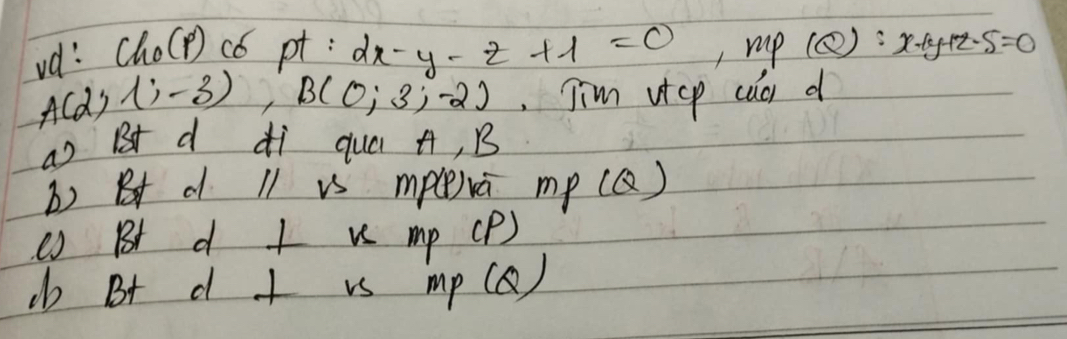 vd: Cho(P) có pt : 2x-y-z+1=0, mp (Q): x-4y+z-5=0
A(2;1;-3), B(0;3;-2). Tìm vtcp của d
a) Bt d đi qua A, B
b) Bt d // vs mp(P) và mp (Q)
c) Bt d ⊥ vs mp (P)
d) Bt d ⊥ vs mp (Q)